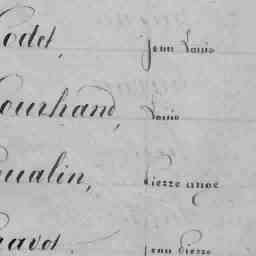 odet, jean Louis
ourhand, Louis
ualin, pierre ange
avot. jean pierre